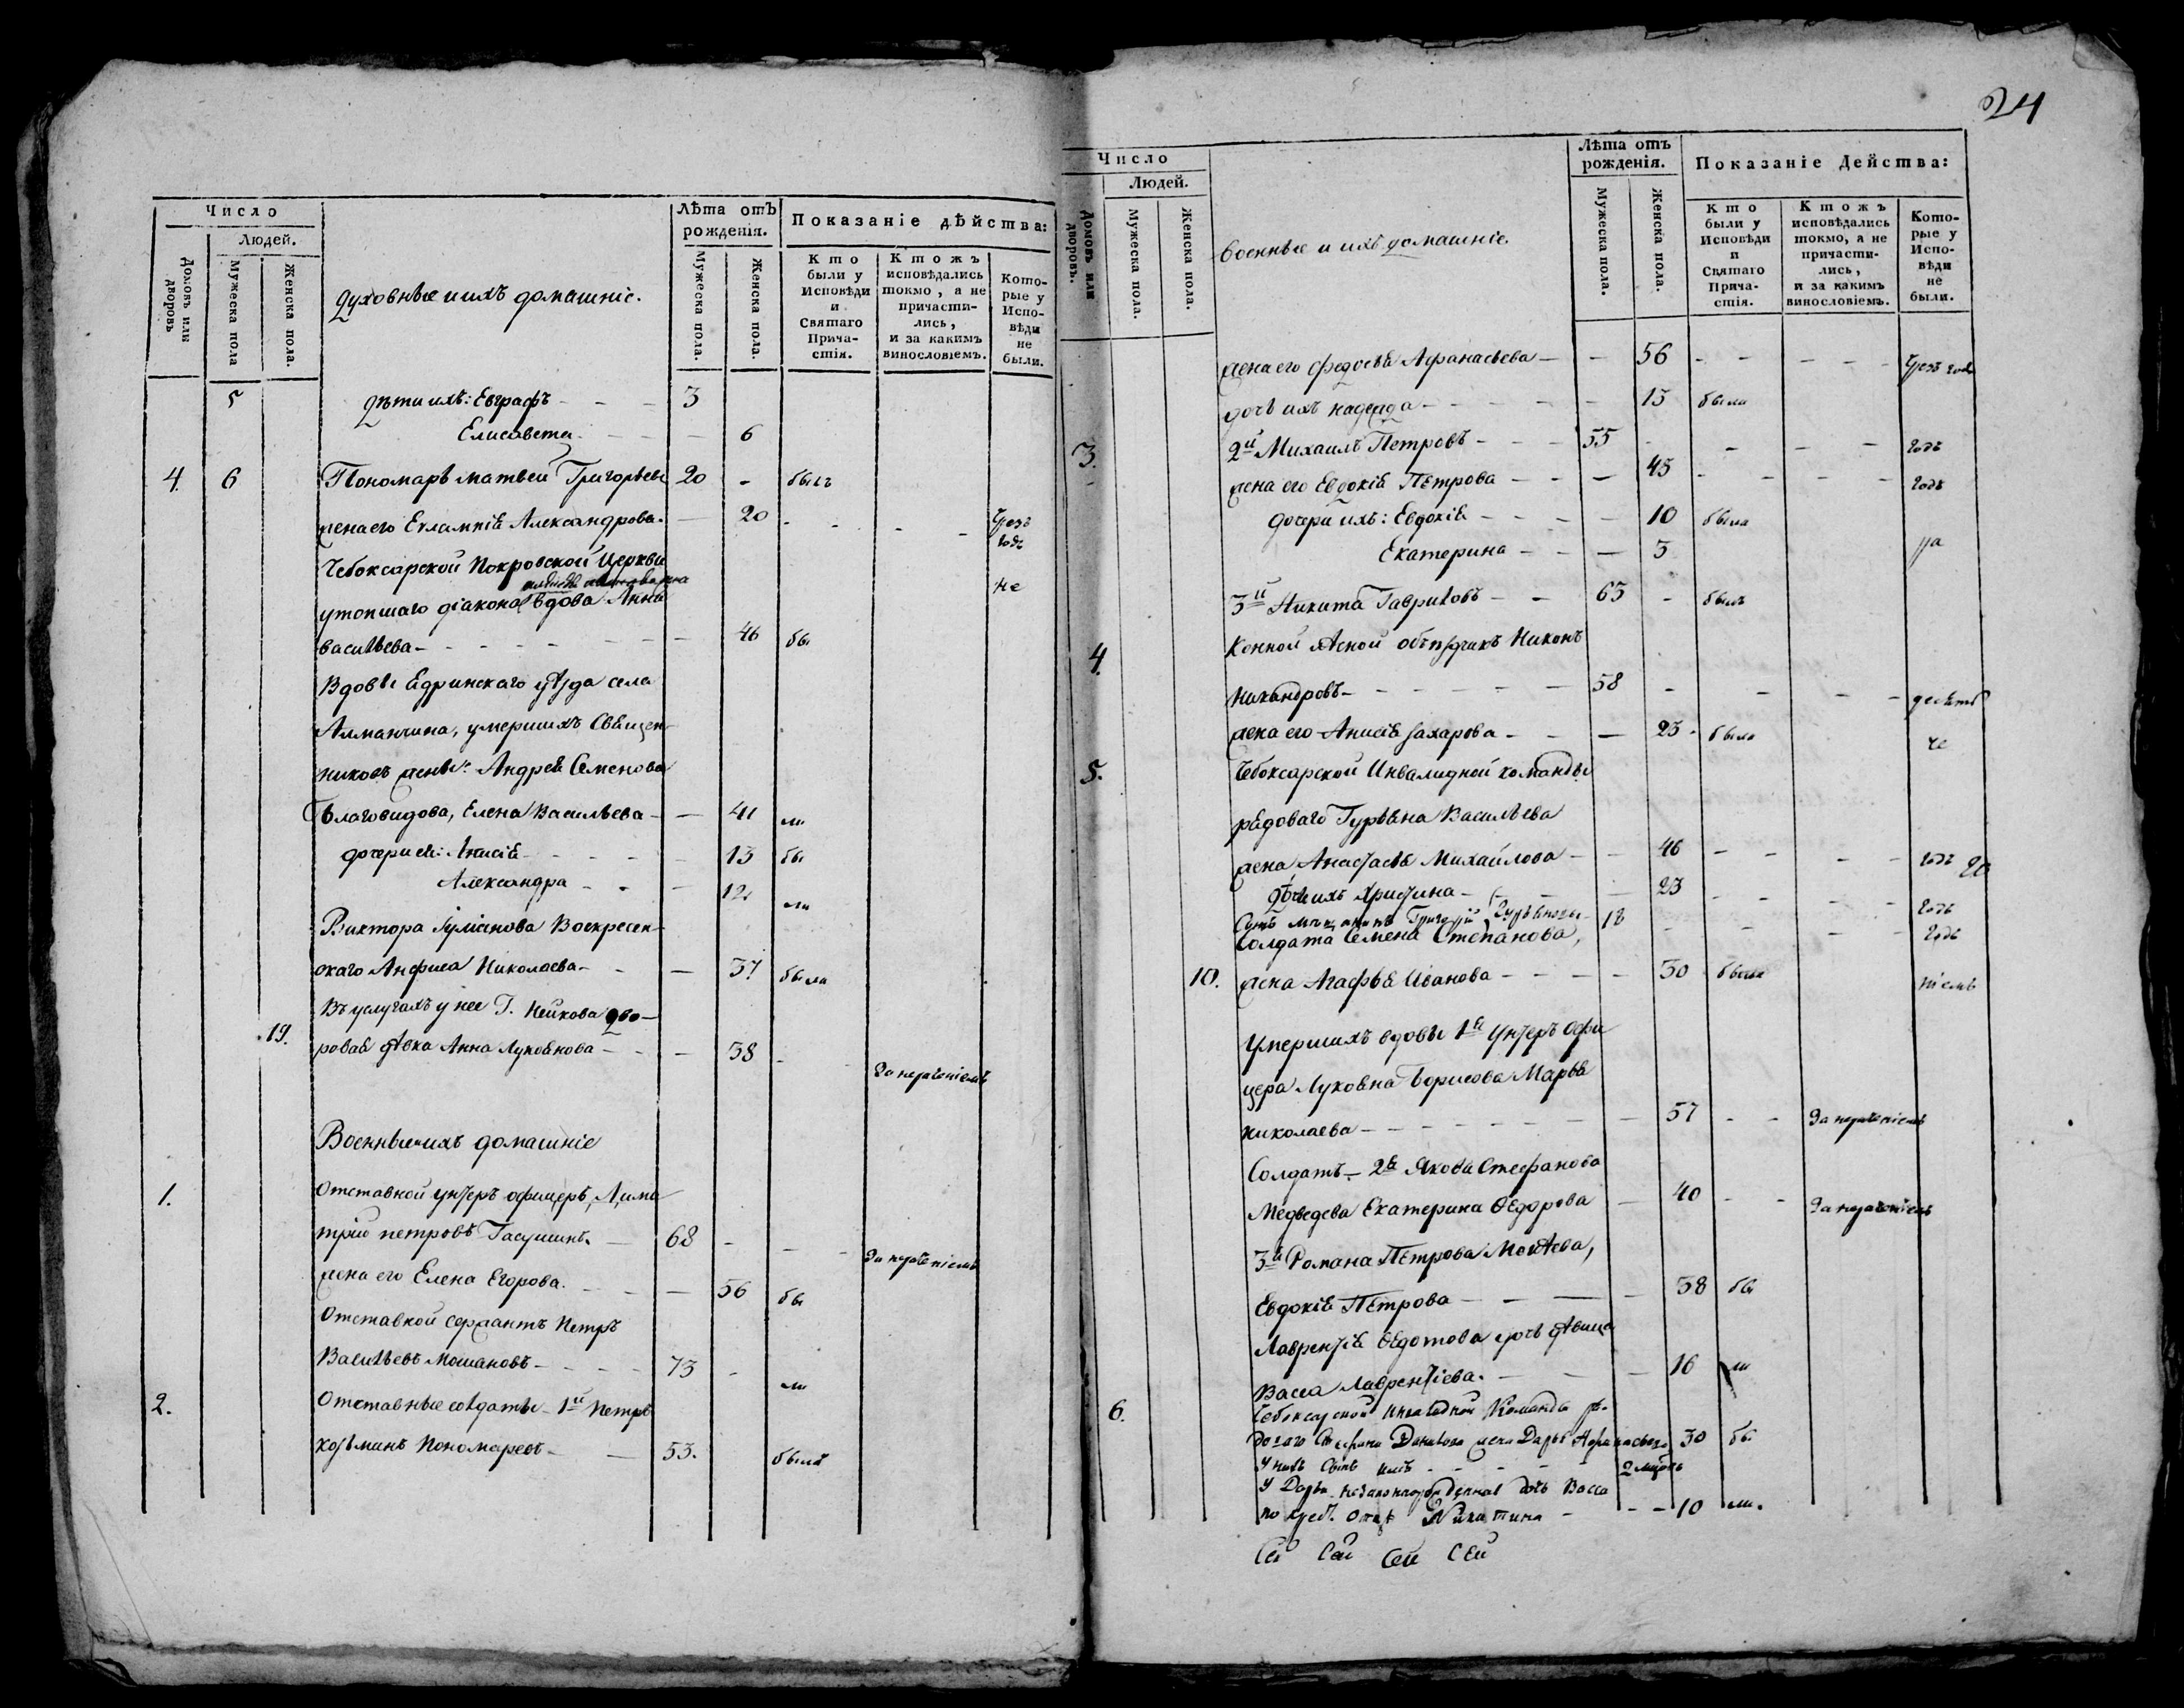 24
Число
Людей.
Домовъ или дворовъ
Мужеска пола
Женска пола.
Духовные и ихъ домашніе.
Лѣта отъ рожденія.
Мужеска пола.
Женска пола.
Показаніе дѣйства:
Кто были у Исповѣди и Святаго Прича-стія.
Ктожъ исповѣдались токмо, а не причасти-лись, и за какимъ винословіемъ.
Кото-рые у Испо-вѣди не были.
5 Дѣти ихъ: Евграфъ - - - 3
Елисавета - - - 6
4. 6 Пономарь Матвей Григорьевъ 20 - былъ
жена его Евлампія Александрова. — 20 - - -
Чебоксарской Покровской Церкви
утопшаго діакона вдова Анна не
Васильева - - - - - 46 бы
Вдовы Ядринскаго уѣзда села
Алманчина, умершихъ Священ-
никовъ жены: Андрея Семенова
Благовидова, Елена Васильева - — 41 ли
дочери ея: Анисія - - - - 13 бы
Александра - - - 12 ли
Виктора Воскресен-
скаго Анфиса Николаева - - — 37 была
Въ услугахъ у нее Г. Нейкова дво-
19. ровая дѣвка Анна Лукоянова - - - 38 - За нераченіемъ
Военные и ихъ домашніе
1. Отставной унтеръ офицеръ, Дими
трій Петровъ — 68 - - - За нераченіемъ
жена его Елена Егорова. - - — 56 бы
Отставной сержантъ Петръ
Васильевъ Мошановъ - - - - 73 - ли
2. Отставные солдаты - 1й Петръ
Козминъ Пономаревъ - — 53. были
Число
Людей.
Домовъ или дворовъ.
Мужеска пола.
Женска пола.
Военные и ихъ домашніе.
Лѣта отъ рожденія.
Мужеска пола.
Женска пола.
Показаніе Действа:
Кто были у Исповѣди и Святаго Прича-стія.
Ктожъ исповѣдались токмо, а не причасти-лись, и за какимъ винословіемъ.
Кото-рые у Испо-вѣди не были.
жена его Федосья Афанасьева — - 56 - - - - -
дочь ихъ Надежда - - - - - - 15 была
3. 2й Михаилъ Петровъ - - - 55 - - - - годъ
жена его Евдокія Петрова - - — 45 - - - - годъ
дочери ихъ: Евдокія - - - — 10 была
Екатерина - - — 5
3й Никита Гавриловъ - - 65 - былъ
4. Конной лѣсной объѣздчикъ Никонъ
Никандровъ - - - - - - 58 - - - -
жена его Анисія Захарова - - — 23 - была
5. Чебоксарской Инвалидной команды
рядоваго Гурьяна Васильева
жена, Анастасія Михайлова - - 46 - - - - годъ
дочь ихъ Христина - - 23 - - - - годъ
Сынъ Григорій 18 - - - - годъ
Солдата Семена Степанова,
10. жена Агафья Иванова - - - - - 30 была
Умершихъ вдовы 1я Унтеръ Офи
цера Лукояна Борисова Марья
Николаева - - - - - - - — 57 - - За нераченіемъ
Солдатъ - 2я Якова Стефанова
Медведева Екатерина Ѳедорова — 40 - - За нераченіемъ
3я Романа Петрова
Евдокія Петрова - — — - 38 бы
Лаврентія Ѳедотова дочь дѣвица
Васса Лаврентіева. - — - — 16 ли
6. Чебоксарской Инвалидной Команды ря-
доваго Данилова жена Дарья Афанасьева 30 бы
У нихъ Сынъ - - - - - 2 мцовъ
У Дарьи незаконнорожденная дочь Васса
по крест. отцѣ Никитина - - - 10 ли.